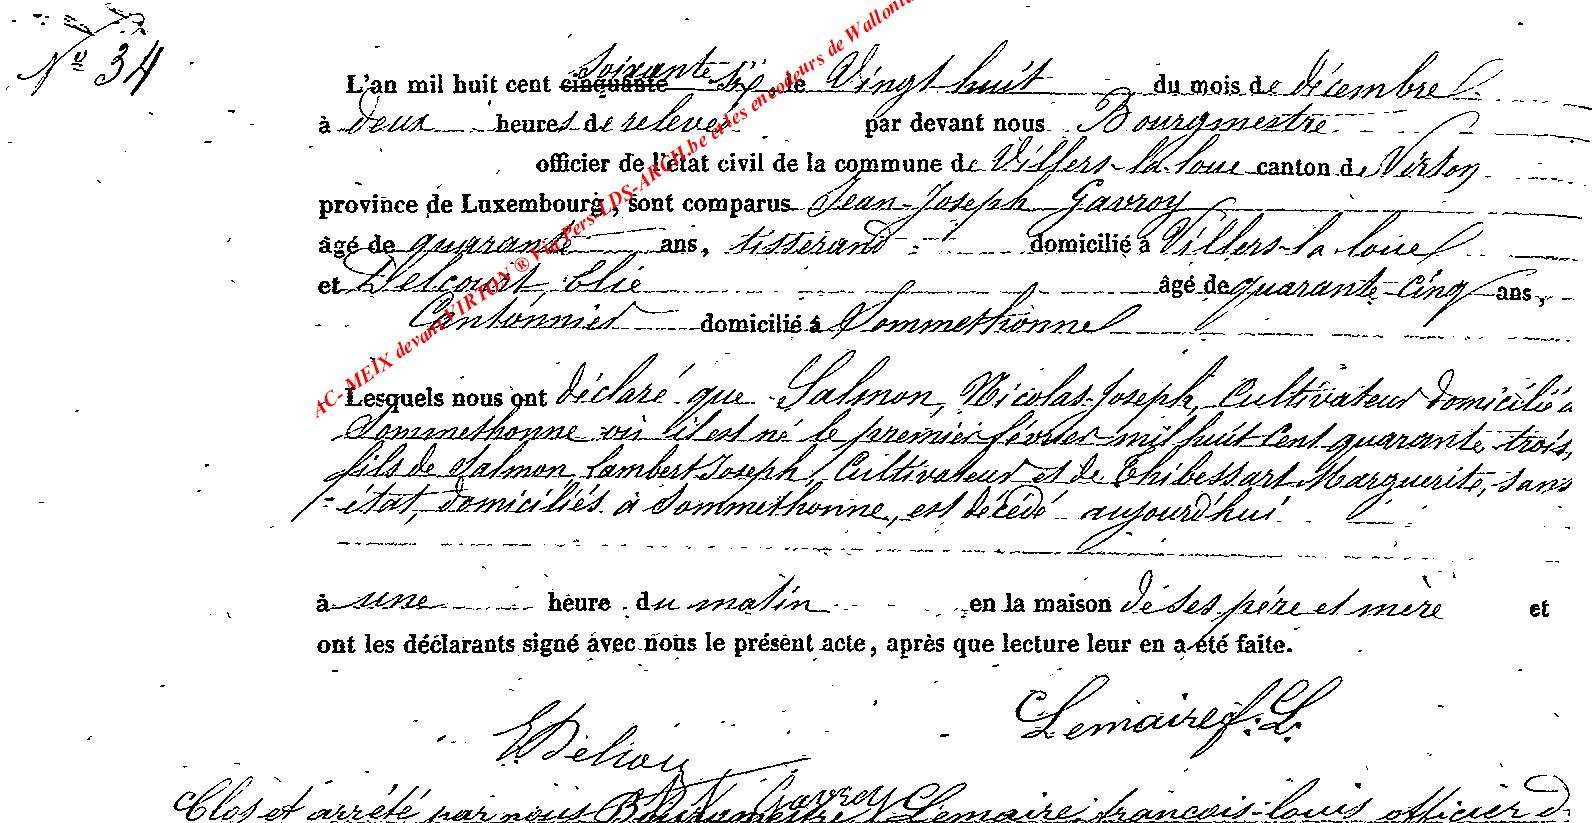 Nº 34
L'an mil huit cent cinquante soixante six, le Vingt huit du mois de décembre
à deux heures de relevée par devant nous Bourgmestre
officier de l'état civil de la commune de Villers-la-loue canton de Virton
province de Luxembourg, sont comparus Jean-Joseph Gavroy
âgé de quarante ans, tisserand domicilié à Villers-la loue
et Delcourt, Elie âgé de quarante-cinq ans,
Cantonnier domicilié à Sommethonne
Lesquels nous ont déclaré que Salmon, Nicolas-Joseph, Cultivateur domicilié à
Sommethonne où il est né le premier février mil huit cent quarante-trois,
fils de Salmon, Lambert Joseph, Cultivateur et de Thibessart Marguerite, sans
état, domiciliés à Sommethonne, est décédé aujourd'hui
à une heure du matin en la maison de ses père et mère et
ont les déclarants signé avec nous le présent acte, après que lecture leur en a été faite.
Lemaire f. L.
E Delcour
Gavroy
Clos et arrêté par nous Bourgmestre Lemaire, françois-louis officier d
AC- MEIX devant VIRTON ® Via Pers-LDS-ARCH.be et les encodeurs de Wallonie